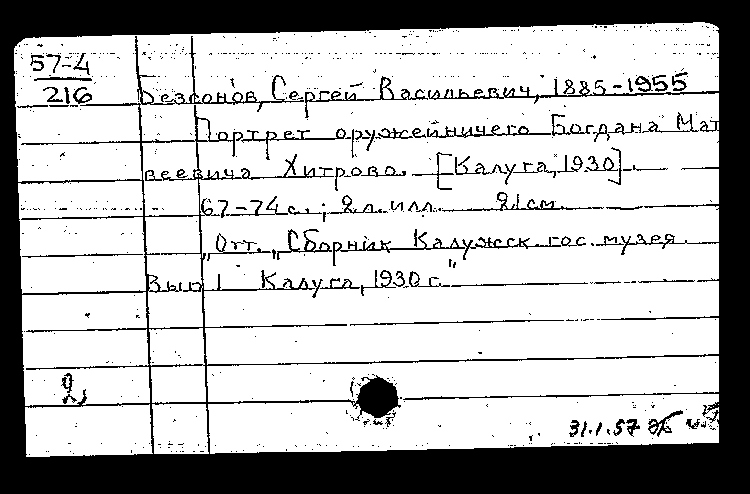 57-4
216
Безсонов, Сергей Васильевич, 1885-1955
Портрет оружейничего Богдана Мат
веевича Хитрово. [Калуга, 1930].
67-74 с. ; 2 л. илл. 21 см.
„Отт. „Сборник Калужск. гос. музея.
Вып 1 Калуга, 1930 г."
2
31.1.57